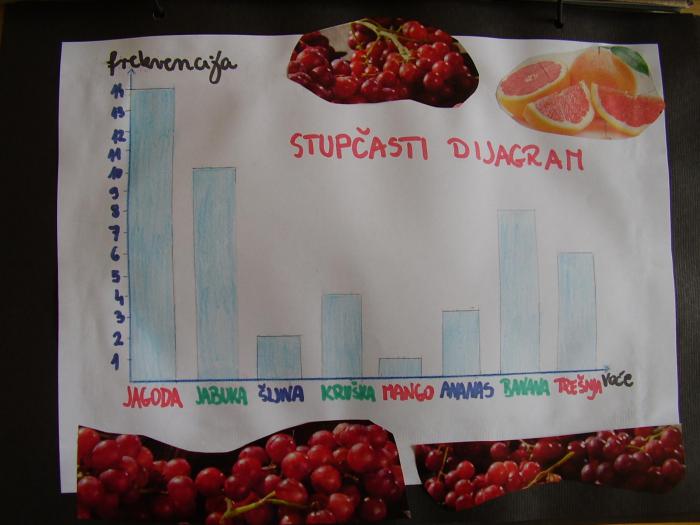 frekvencija
STUPČASTI DIJAGRAM
14
13
12
11
10
9
8
7
6
5
4
3
2
1
JAGODA JABUKA ŠLJIVA KRUŠKA MANGO ANANAS BANANA TREŠNJA voće